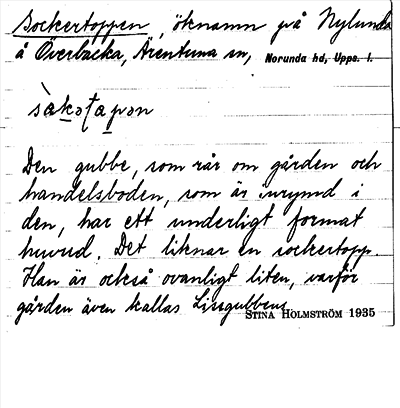 Sockertoppen, öknamn på Nylunda
å Överbacka, Ärentuna sn, Norunda hd, Upps. l.
Den gubbe, som rår om gården och
handelsboden, som är inrymd i
den, har ett underligt format
huvud. Det liknar en sockertopp.
Han är också ovanligt liten, varför
gården även kallas Lissgubbens
STINA HOLMSTRÖM 1935